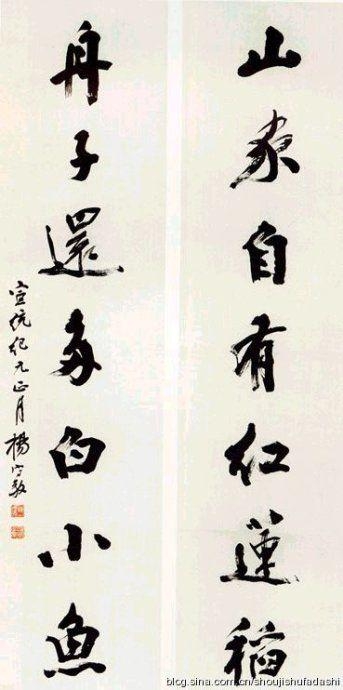 山家自有紅蓮稻
舟子還多白小魚
宣統紀元正月楊守敬
blog.sina.com.cn/shoujishufadashi